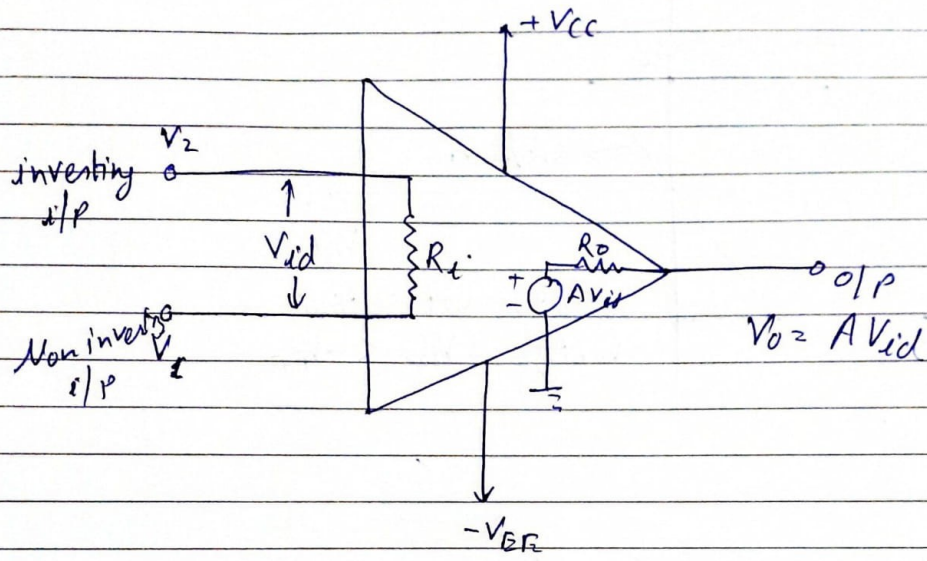 + VCC
V2
inverting
i/p
Vid
Ri
Ro
+
-
AVid
o/p
Vo = A Vid
Non inverting
V1
i/p
-VEE